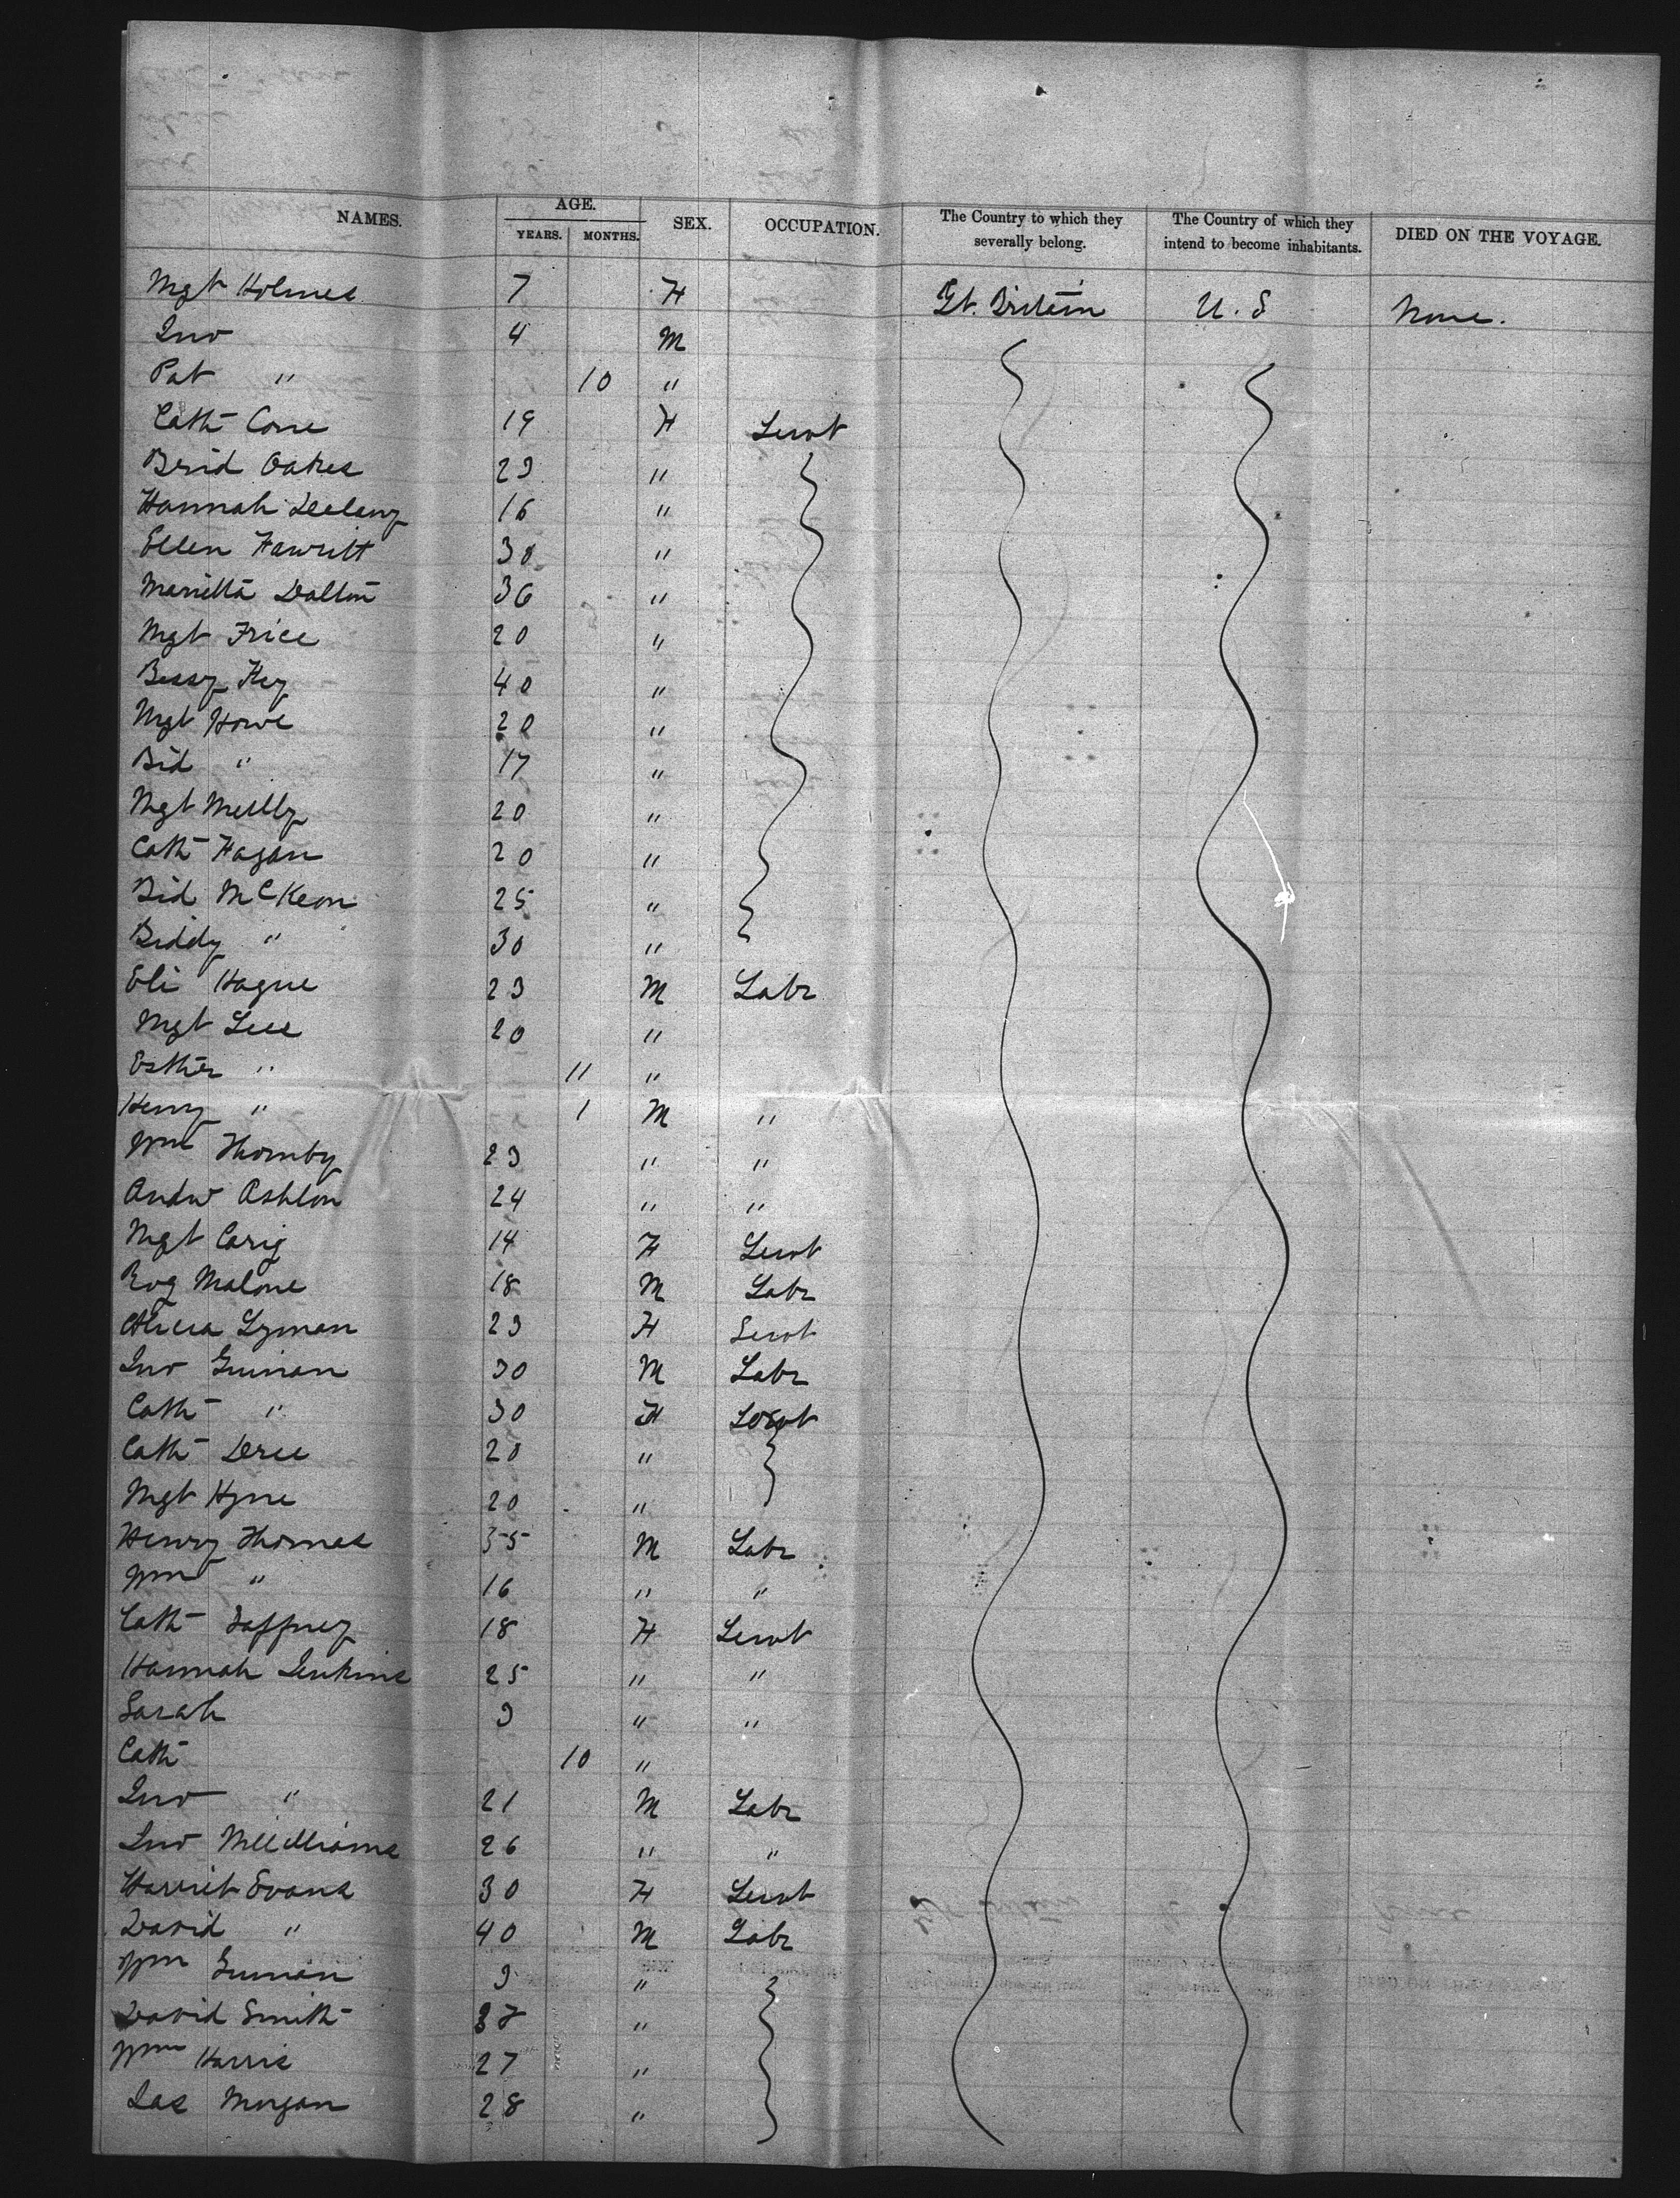 NAMES. AGE. YEARS. MONTHS. SEX. OCCUPATION. The Country to which they severally belong. The Country of which they intend to become inhabitants. DIED ON THE VOYAGE.
Mgt Holmes 7 F Gt. Britain U.S None.
Jno 4 M
Pat " 10 "
Cath Cone 19 F Servt
Brid Oakes 23 "
Hannah 16 "
Ellen Fawritt 30 "
Marietta Dalton 36 "
Mgt Frice 20 "
Bessy Hey 40 "
Mgt Howe 20 "
Bid " 17 "
Mgt Meilly 20 "
Cath Fagan 20 "
Bid McKeon 25 "
Biddy " 30 "
Eli Hague 23 M Labr
Mgt Lees 20 "
Esther " 11 "
Henry " 1 M "
Wm Thornby 23 " "
Andw Ashton 24 " "
Mgt Carig 14 F Servt
Rog Malone 18 M Labr
Alicia Lyman 23 F Servt
Jno Guinan 30 M Labr
Cath " 30 F Servt
Cath Dree 20 "
Mgt Hyne 20 "
Henry Thomas 55 M Labr
Wm " 16 " "
Cath Gaffney 18 F Servt
Hannah Jenkins 25 " "
Sarah 9 " "
Cath 10 "
Jno " 21 M Labr
Jno Williams 26 " "
Harriet Evans 30 F Servt
David " 40 M Labr
Wm Guinan 9 "
David Smith "
Wm Harris 27 "
Jas Morgan 28 "